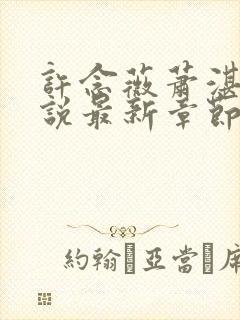 許念薇蕭湛
說最新章節
約翰·亞當·庫